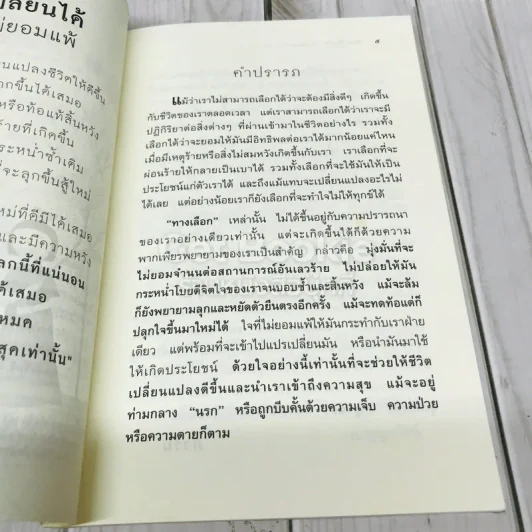 ปลี่ยนได้
ม่ยอมแพ้
ยนแปลงชีวิตให้ดีขึ้น
ลุกขึ้นได้เสมอ
หรือท้อแท้สิ้นหวัง
ร้ายที่เกิดขึ้น
ระหน่ำซ้ำเติม
ที่จะลุกขึ้นสู้ใหม่
ใหม่ที่ดีมีได้เสมอ
และมีความหวัง
ลกนี้ที่แน่นอน
ได้เสมอ
หมด
สุดเท่านั้น"
๕
คำปรารภ
แม้ว่าเราไม่สามารถเลือกได้ว่าจะต้องมีสิ่งดีๆ เกิดขึ้น
กับชีวิตของเราตลอดเวลา แต่เราสามารถเลือกได้ว่าเราจะมี
ปฏิกิริยาต่อสิ่งต่างๆ ที่ผ่านเข้ามาในชีวิตอย่างไร รวมทั้ง
เลือกได้ว่าจะยอมให้มันมีอิทธิพลต่อเราได้มากน้อยแค่ไหน
เมื่อมีเหตุร้ายหรือสิ่งไม่สมหวังเกิดขึ้นกับเรา เราเลือกที่จะ
ผ่อนร้ายให้กลายเป็นเบาได้ รวมทั้งเลือกที่จะใช้มันให้เป็น
ประโยชน์แก่ตัวเราได้ และถึงแม้แทบจะเปลี่ยนแปลงอะไรไม่
ได้เลย แต่อย่างน้อยเราก็ยังเลือกที่จะทำใจไม่ให้ทุกข์ได้
"ทางเลือก" เหล่านั้น ไม่ได้ขึ้นอยู่กับความปรารถนา
ของเราอย่างเดียวเท่านั้น แต่จะเกิดขึ้นได้ก็ด้วยความ
พากเพียรพยายามของเราเป็นสำคัญ กล่าวคือ มุ่งมั่นที่จะ
ไม่ยอมจำนนต่อสถานการณ์อันเลวร้าย ไม่ปล่อยให้มัน
กระหน่ำโบยตีจิตใจของเราจนบอบช้ำและสิ้นหวัง แม้จะล้ม
ก็ยังพยายามลุกและหยัดตัวยืนตรงอีกครั้ง แม้จะหดท้อแต่ก็
ปลุกใจขึ้นมาใหม่ได้ ใจที่ไม่ยอมแพ้ให้มันกระทำกับเราฝ่าย
เดียว แต่พร้อมที่จะเข้าไปแปรเปลี่ยนมัน หรือนำมันมาใช้
ให้เกิดประโยชน์ ด้วยใจอย่างนี้เท่านั้นที่จะช่วยให้ชีวิต
เปลี่ยนแปลงดีขึ้นและนำเราเข้าถึงความสุข แม้จะอยู่
ท่ามกลาง "นรก" หรือถูกบีบคั้นด้วยความเจ็บ ความป่วย
หรือความตายก็ตาม